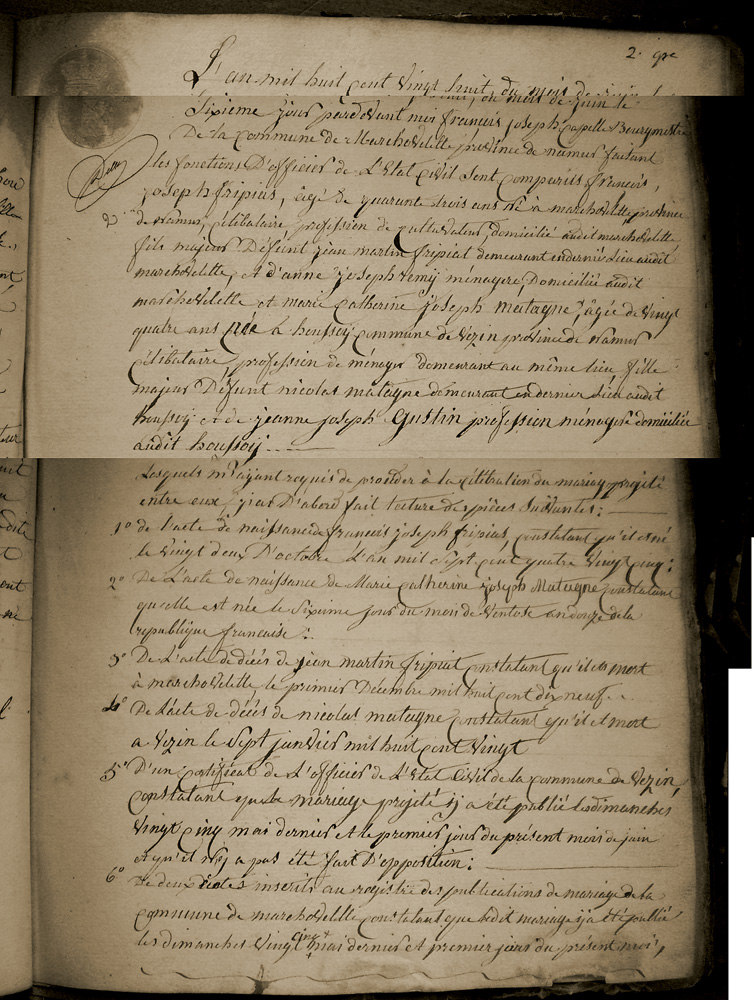 2. 
L'an mil huit cent vingt huit, du mois de juin le
Sixieme jour pardevant moi françois joseph Capelle Bourgmestre
De la commune de Marchovelette province de namur faisant
les fonctions D'officier de L'Etat Civil Sont comparus françois
joseph fripiat, âgé De quarante trois ans né à marchovelette province
2
de namur, célibataire, profession de cultivateur, domicilié audit marchovelette
fils majeur Défunt jean martin fripiat demeurant en dernier lieu audit
marchovelette, et d'anne joseph remy ménagere Domiciliée audit
marchovelette et marie Catherine joseph matagne âgée de vingt
quatre ans née à houssoy commune de Vezin province de namur
célibataire profession de ménager demeurant au même lieu fille
majeur Défunt nicolas matagne demeurant en dernier Lieu audit
houssoy et de jeanne joseph Gustin profession ménagere domiciliée
audit houssoy
Lesquels m'ayant requis de procéder à la célébration du mariage projeté
entre eux, j'ai D'abord fait lecture des pièces Suivantes:
1° de l'acte de naissance de françois joseph fripiat, constatant qu'il est né
le vingt deux D'octobre L'an mil Sept cent quatre Vingt cinq:
2° De L'acte de naissance de Marie catherine joseph Matagne constatant
qu'elle est née le Sixieme jour du mois de Ventose an douze de la
republique francaise:
3° De L'acte de décés de jean martin fripiat constatant qu'il est mort
à marchovelette le premier Décembre mil huit cent dix neuf
4° De L'acte de décés de nicolas matagne constatant qu'il est mort
a Vezin le Sept janvier mil huit cent Vingt
5° D'un certificat de L'officier de L'Etat Civil de la commune de Vezin,
constatant que le mariage projeté y a été publié les dimanches
Vingt cinq mai dernier et le premier jour du présent mois de juin
et qu'il n'y a pas été fait D'opposition:
6° De deux actes inscrits au registre des publications de mariage de la
commune de marchovelette constatant que ledit mariage y a été publié
les dimanches Vingt cinq mai dernier et premier jour du présent mois,